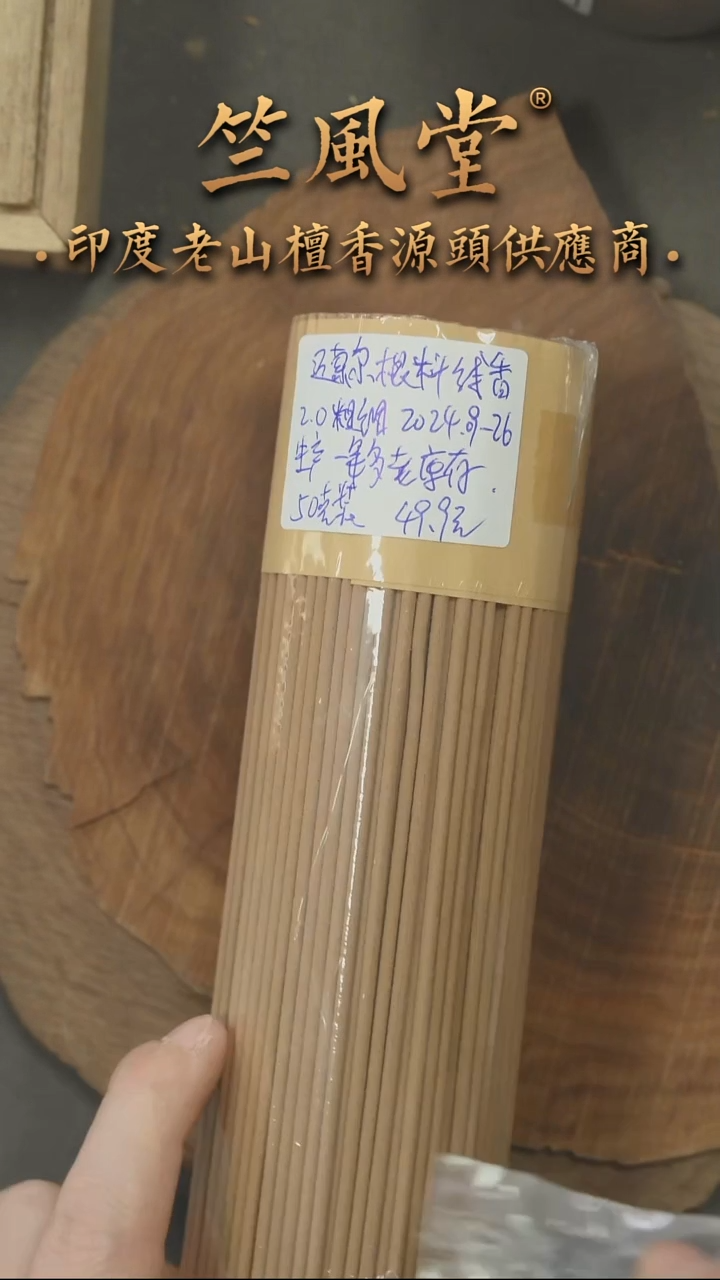 竺風堂®
·印度老山檀香源頭供應商·
迈索尔根料线香
2.0粗细 2024.9-26
生产 一年多老库存.
50克装 49.9元